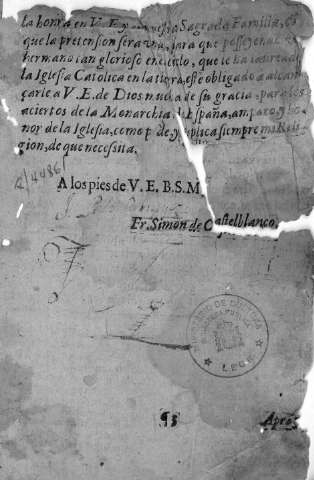 la honra en V. E. y nuestra Sagrada Familia, es
que la pretension sera una, para que posseyendo
hermano tan glorioso en cielo, que le ha
la Iglesia Catolica en la tierra, esté obligado a alcan
çarle a V. E. de Dios mucha de su gracia, para los
aciertos de la Monarchia de España, amparo, y ho
nor de la Iglesia, como p de, y suplica siempre mi Reli
gion, de que necessita.
R/4486
A los pies de V. E. B. S. M.
Fr. Simon de Castelblanco.
MINISTERIO DE CULTURA
BIBLIOTECA PUBLICA
LEON
¶3
Apro